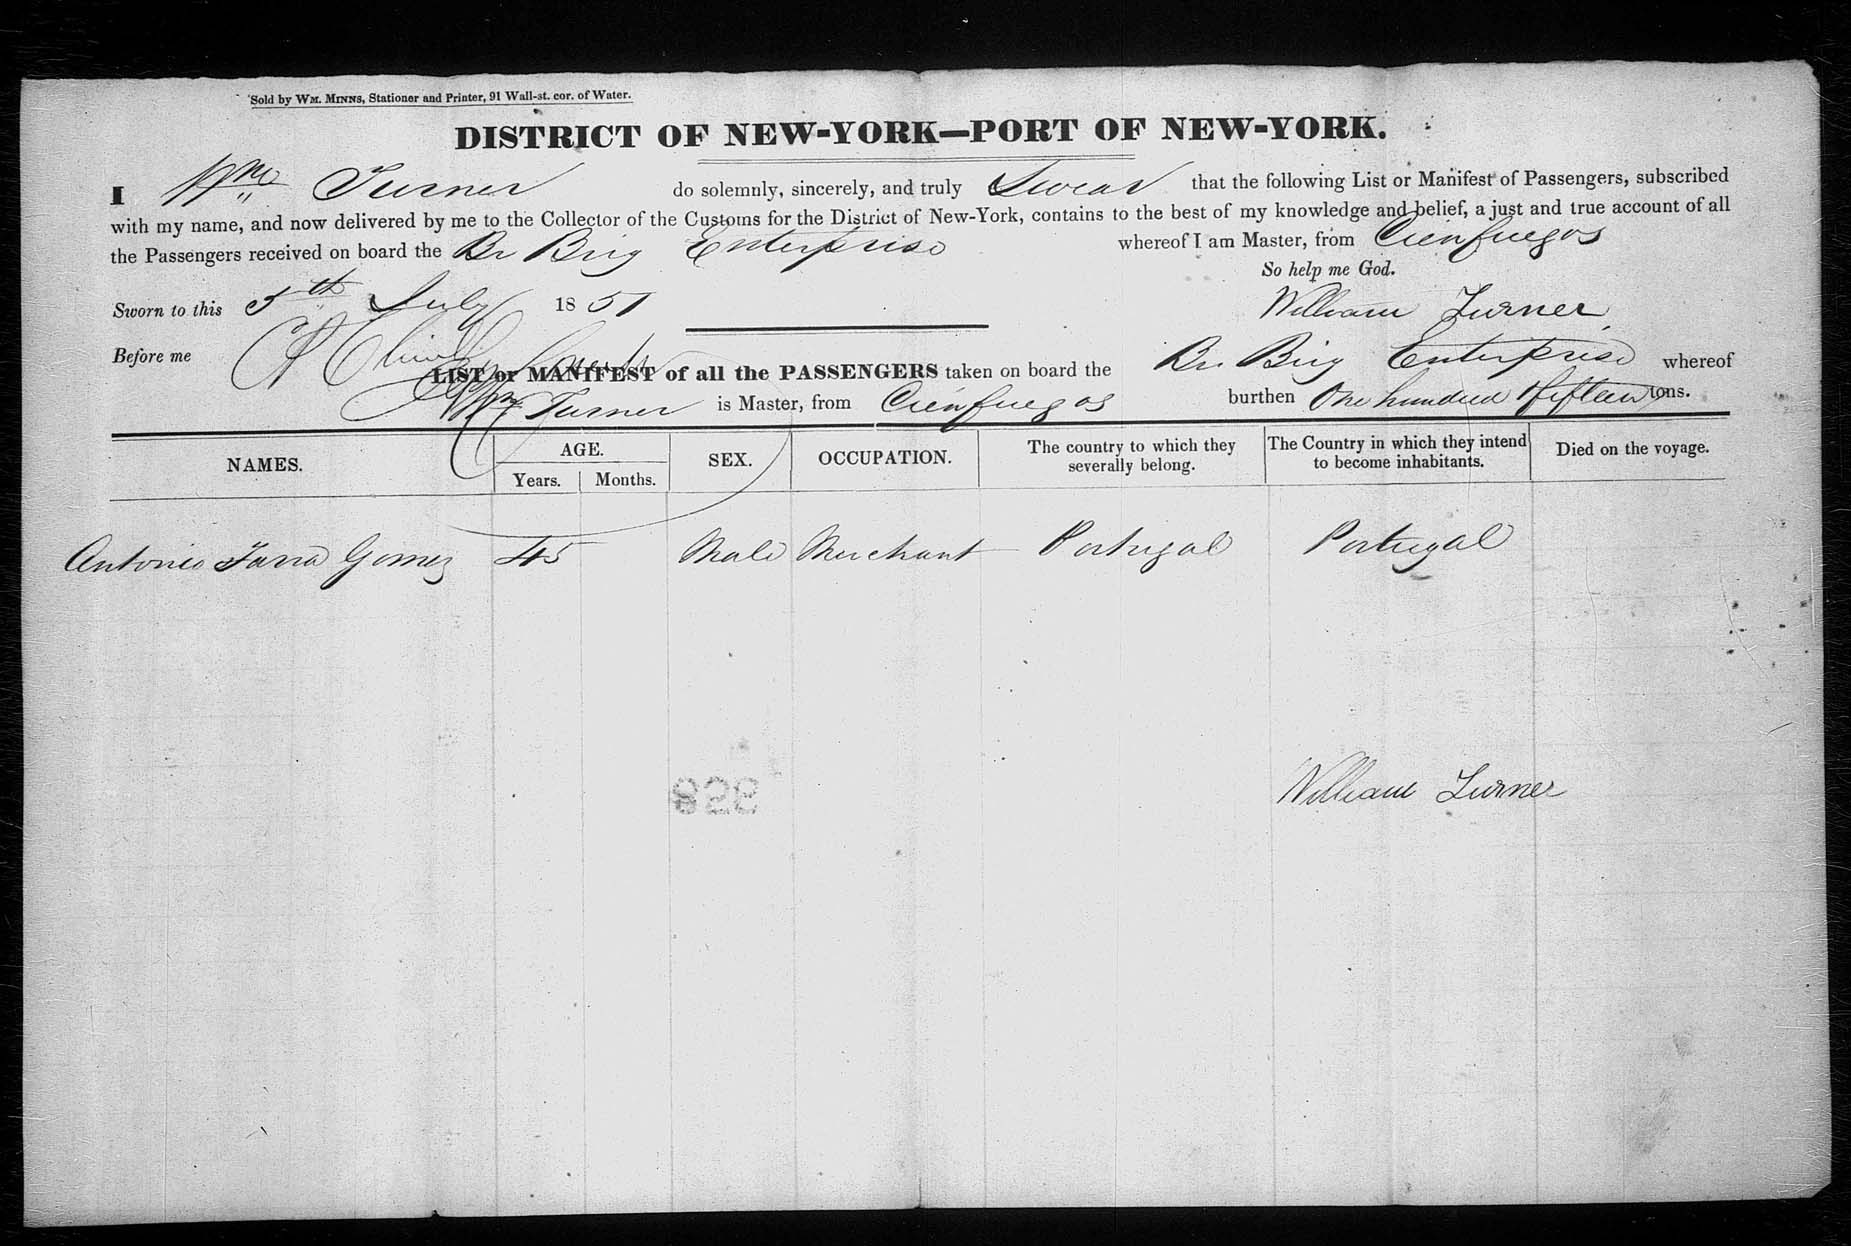 Sold by WM. MINNS, Stationer and Printer, 91 Wall-st. cor. of Water.
DISTRICT OF NEW-YORK—PORT OF NEW-YORK.
I Wm Turner do solemnly, sincerely, and truly Swear that the following List or Manifest of Passengers, subscribed
with my name, and now delivered by me to the Collector of the Customs for the District of New-York, contains to the best of my knowledge and belief, a just and true account of all
the Passengers received on board the Br Brig Enterprise whereof I am Master, from Cienfuegos
So help me God.
Sworn to this 5th July 1851
William Turner
Before me
LIST or MANIFEST of all the PASSENGERS taken on board the Br. Brig Enterprise whereof
Wm Turner is Master, from Cienfuegos burthen One hundred & fifteen tons.
NAMES. AGE. SEX. OCCUPATION. The country to which they severally belong. The Country in which they intend to become inhabitants. Died on the voyage.
Years. Months.
Antonio Gomez 45 Male Merchant Portugal Portugal
William Turner